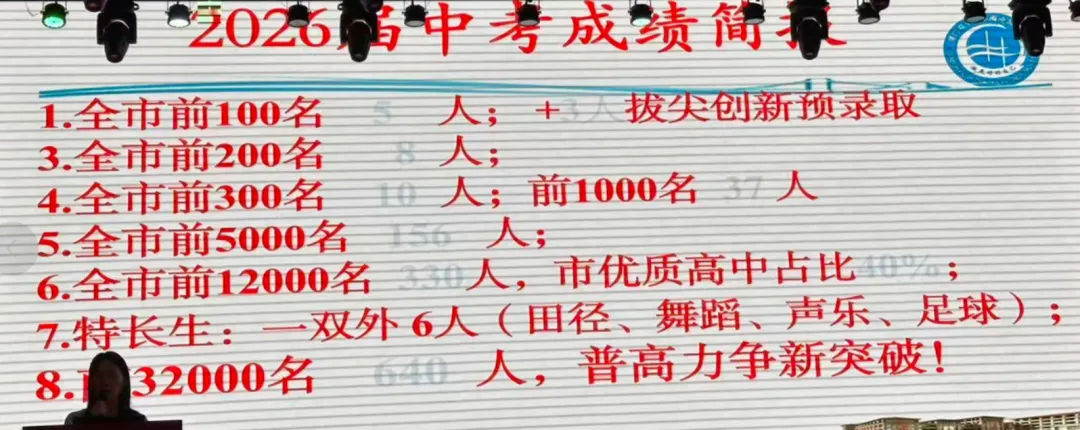 2026届中考成绩简报
1.全市前100名 5 人；+3人拔尖创新预录取
3.全市前200名 8 人；
4.全市前300名 10 人；前1000名 37 人
5.全市前5000名 156 人；
6.全市前12000名 330 人，市优质高中占比40%；
7.特长生：一双外 6人（田径、舞蹈、声乐、足球）；
8. 32000名 640 人，普高力争新突破！